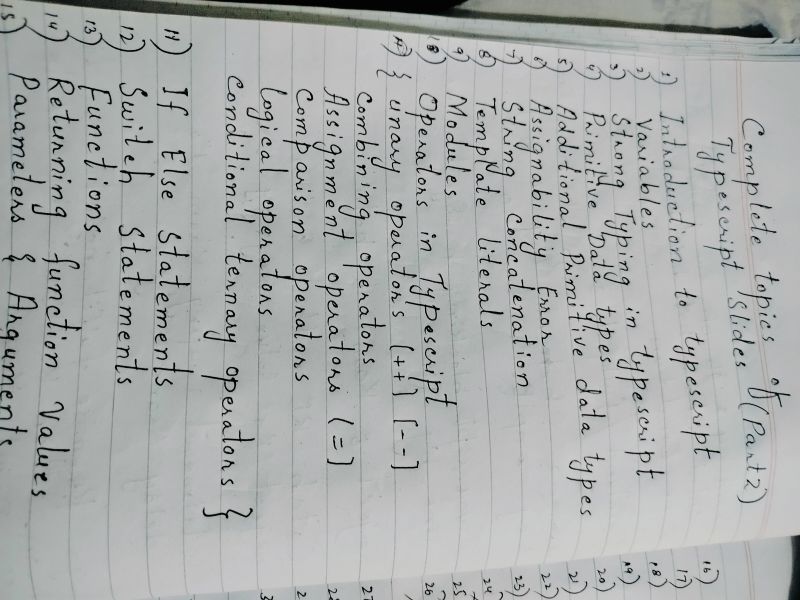 Complete topics of
Typescript Slides (Part 2)
1) Introduction to typescript
2) Variables
3) Strong Typing in typescript
4) Primitive Data types
5) Additional Primitive data types
6) Assignability Error
7) String Concatenation
8) Template literals
9) Modules
10) Operators in Typescript
{ unary operators (++) [--]
combining operators
Assignment operators (=)
Comparison operators
logical operators
conditional ternary operators }
11) If Else Statements
12) Switch Statements
13) Functions
14) Returning function Values
15) Parameters & Arguments
16)
17)
18)
19)
20)
21)
22)
23)
24)
25
26